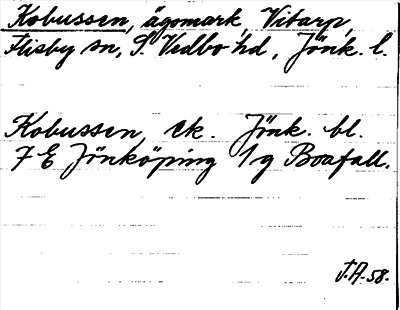 Kobussen, ägomark, Vitarp,
Flisby sn, S. Vedbo hd, Jönk. l.
Kobussen, ek. Jönk. bl.
7 E Jönköping 1g Boafall.
J.A-58.